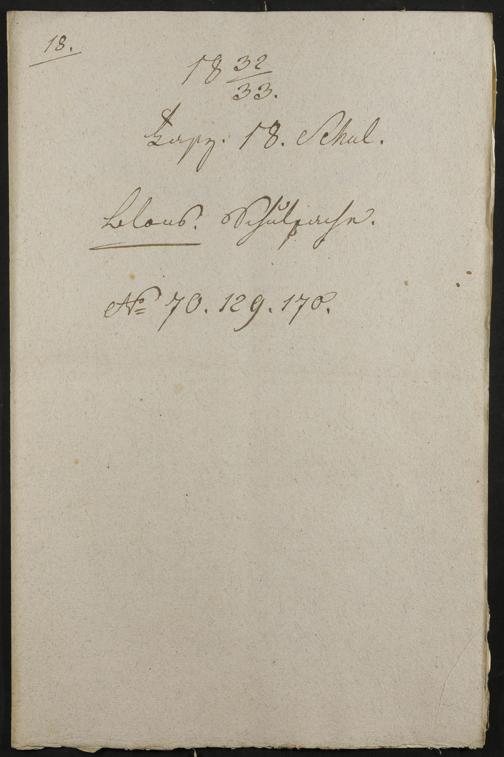 18.
18 32/33.
Fasz. 18. Schul.
Blons. Schulsache.
No 70. 129. 170.